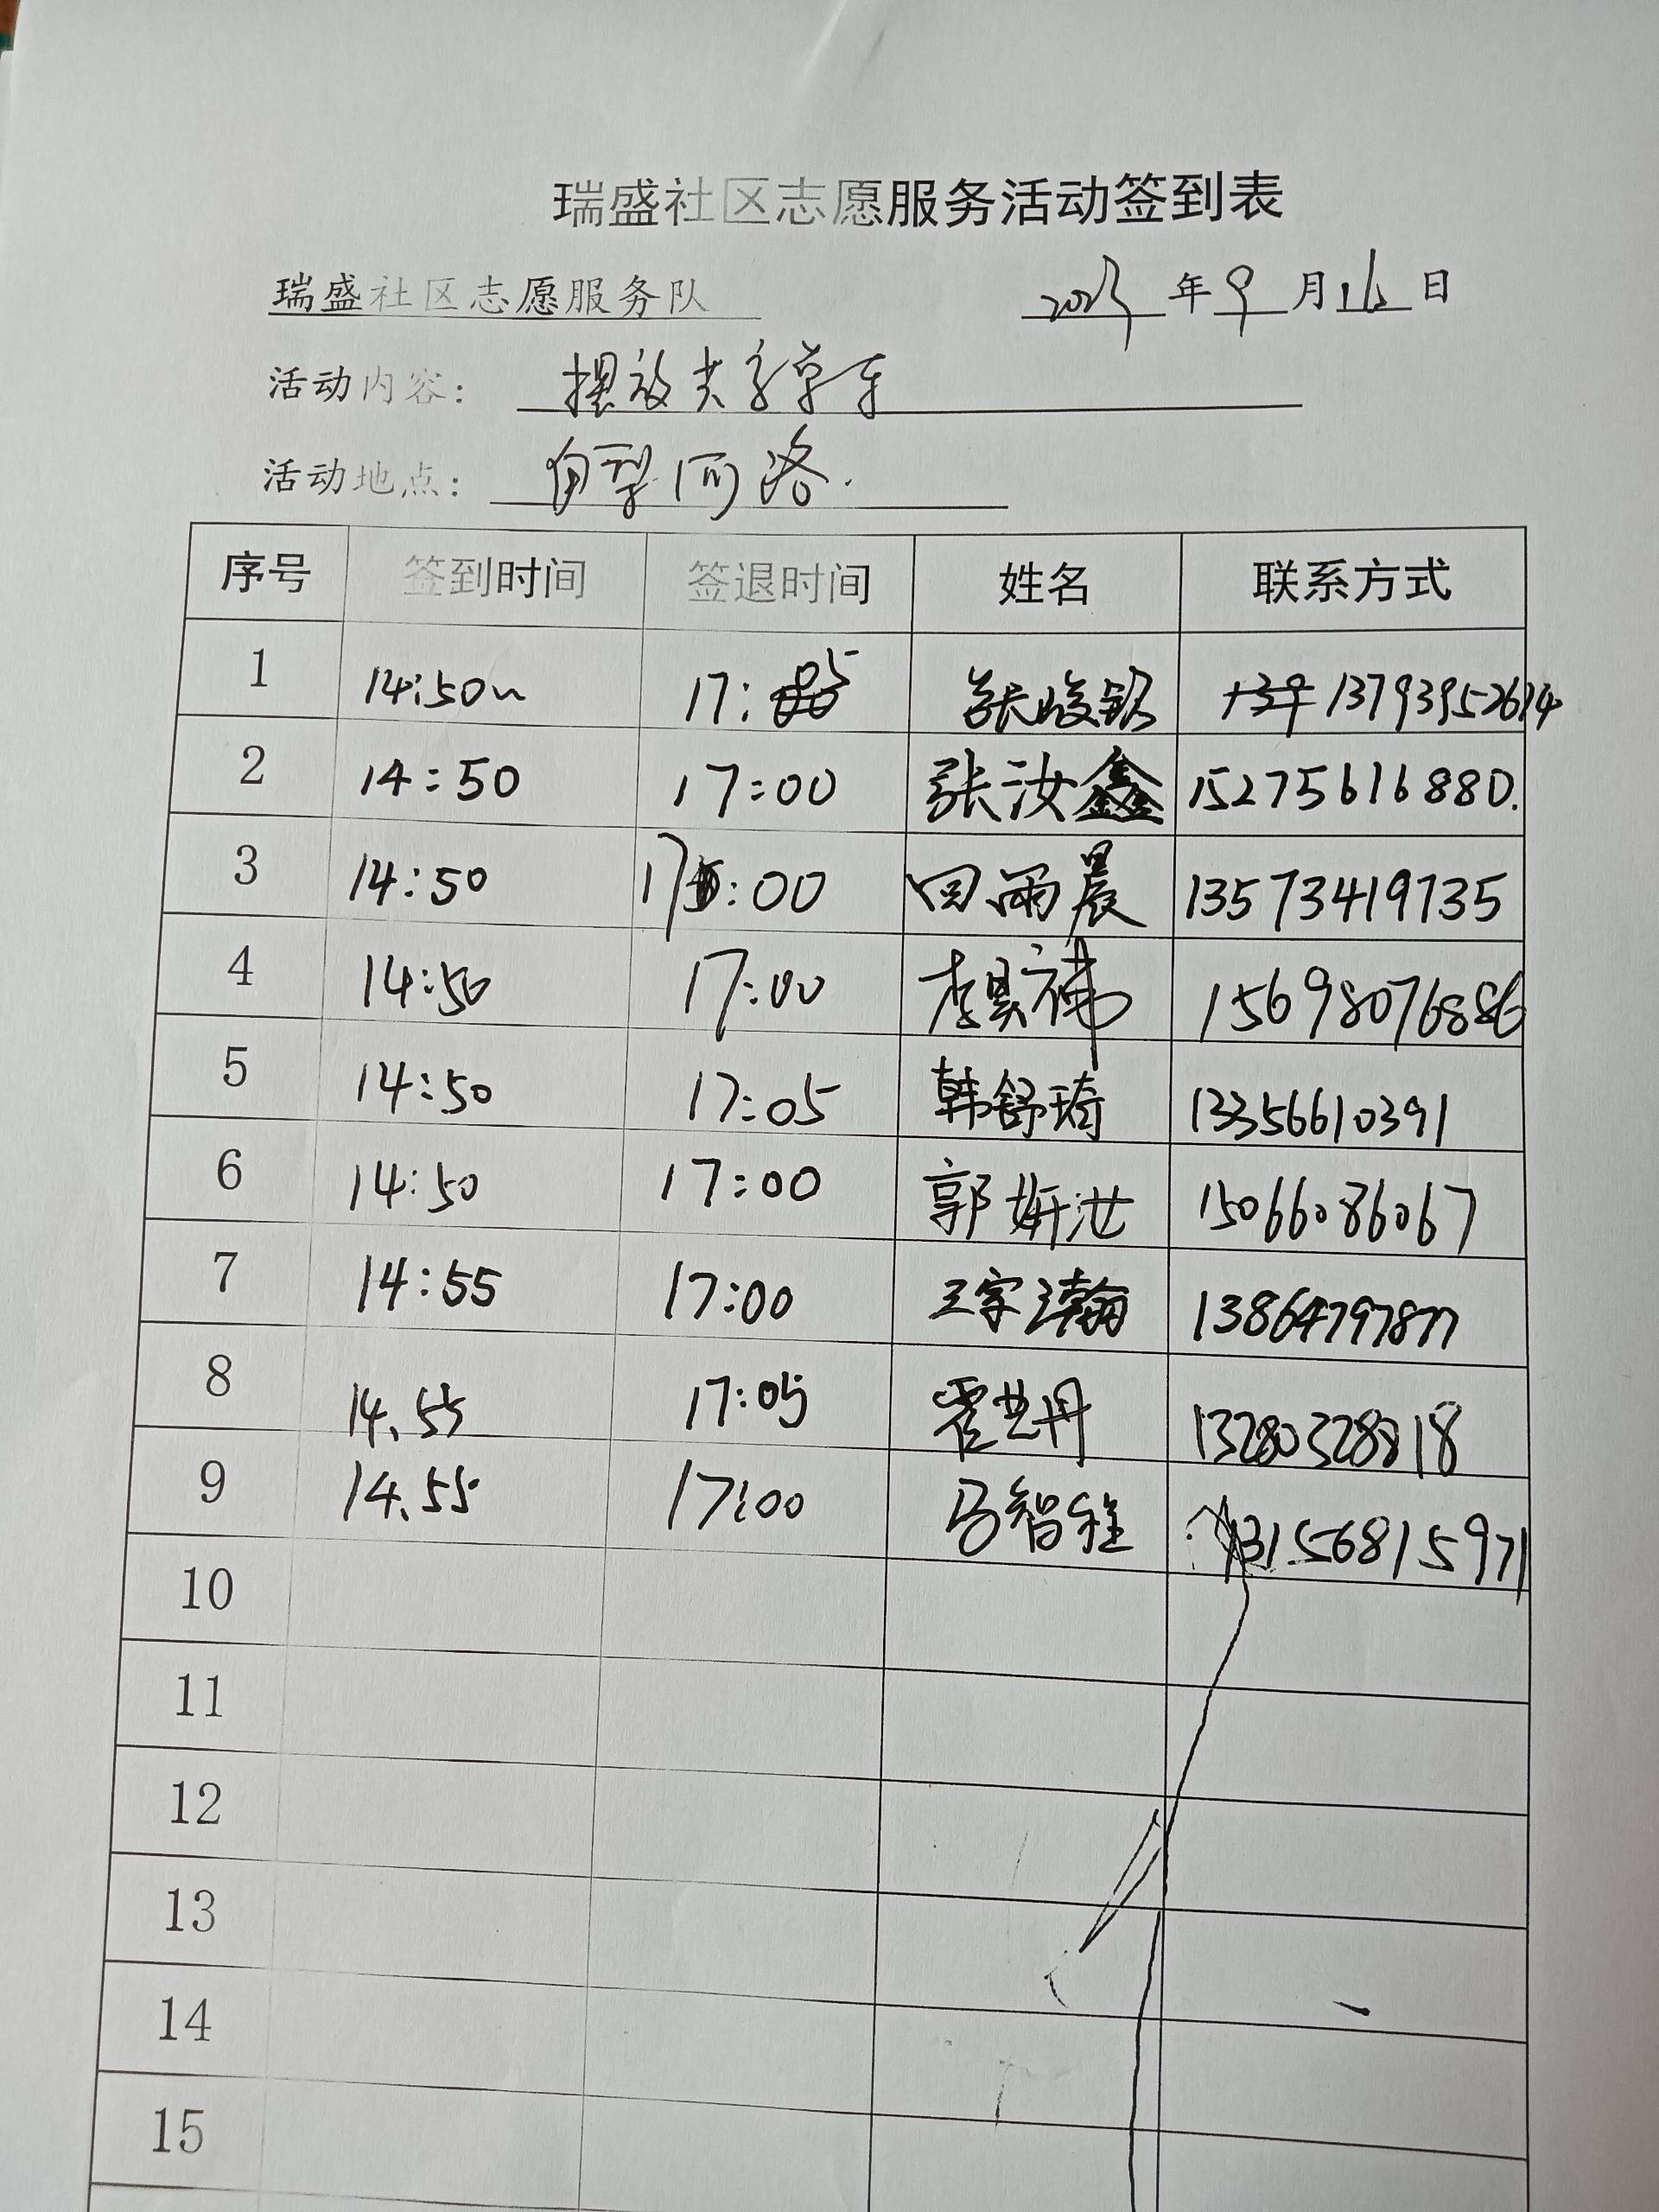 瑞盛社区志愿服务活动签到表
瑞盛社区志愿服务队 年 9 月 16 日
活动内容: 摆放共享单车
活动地点:
序号 签到时间 签退时间 姓名 联系方式
1 14:50 17:05 张峻铭 13793952614
2 14:50 17:00 张汝鑫 15275616880.
3 14:50 17:00 田雨晨 13573419735
4 14:50 17:00 李昊 15698076886
5 14:50 17:05 韩舒琦 13356610391
6 14:50 17:00 郭妍 15066086067
7 14:55 17:00 王宇瀚 13864797877
8 14.55 17:05 霍艺丹 13280328818
9 14.55 17:00 马智程 13156815971
10
11
12
13
14
15